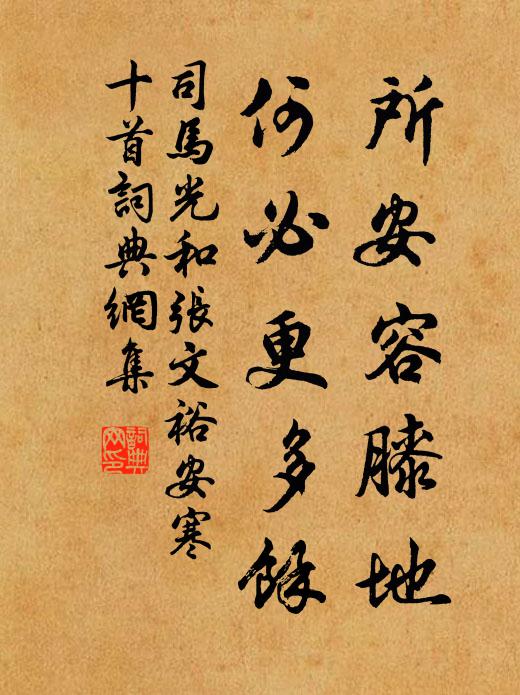 所安容膝地
何必更多餘
司馬光和張文裕安寒
十首詞典網集
詞典
网印